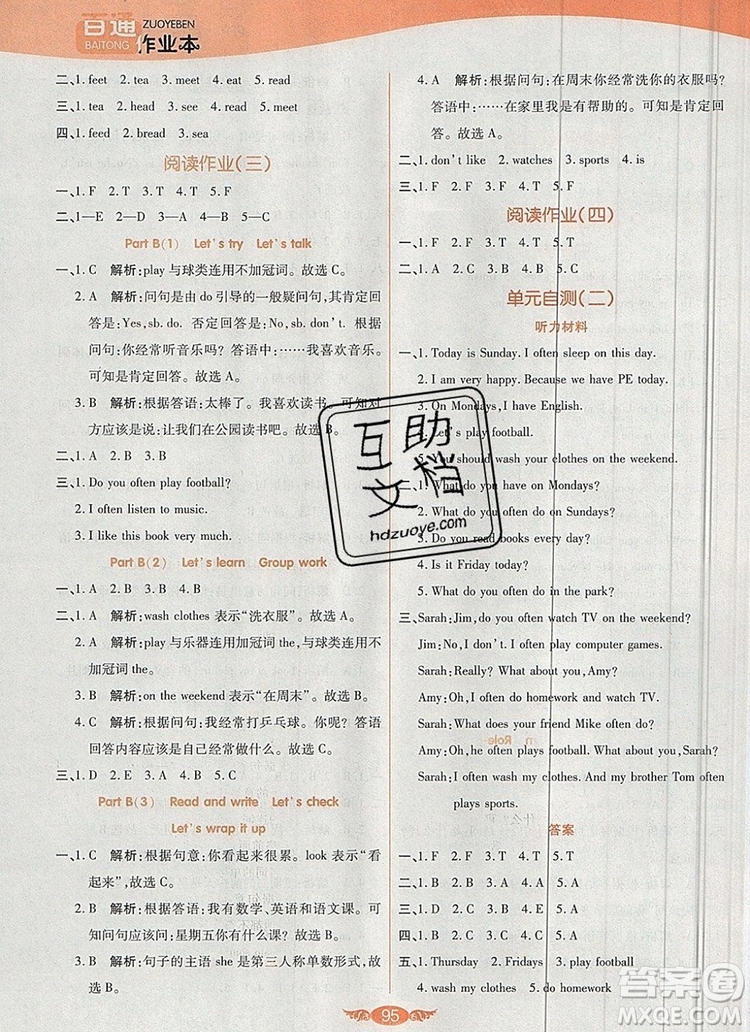 百通
BAITONG
ZUOYEBEN
作业本
二、1. feet 2. tea 3. meet 4. eat 5. read
三、1. tea 2. head 3. see 4. read 5. meet
四、1. feed 2. bread 3. sea
阅读作业(三)
一、1. F 2. T 3. T 4. F 5. T
二、1—E 2—D 3—A 4—B 5—C
Part B(1) Let's try Let's talk
一、1. C 解析:play 与球类连用不加冠词。故选 C。
2. A 解析:问句是由 do 引导的一般疑问句,其肯定回
答是:Yes,sb. do. 否定回答是:No,sb. don't. 根据
问句:你经常听音乐吗?答语中:……我喜欢音乐。
可知是肯定回答。故选 A。
3. B 解析:根据答语:太棒了。我喜欢读书。可知对
方应该是说:让我们在公园读书吧。故选 B。
二、1. A 2. B 3. B
三、1. Do you often play football?
2. I often listen to music.
3. I like this book very much.
Part B(2) Let's learn Group work
一、1. A 2. B 3. A 4. B
二、1. A 解析:wash clothes 表示“洗衣服”。故选 A。
2. A 解析:play 与乐器连用加冠词 the,与球类连用不
加冠词 the。故选 A。
3. B 解析:on the weekend 表示“在周末”。故选 B。
4. B 解析:根据问句:我经常打乒乓球。你呢?答语
回答内容应该是自己经常做什么。故选 B。
三、1. D 2. E 3. A 4. B 5. C
Part B(3) Read and write Let's check
Let's wrap it up
一、1. C 解析:根据句意:你看起来很累。look 表示“看
起来”,故选 C。
2. B 解析:根据答语:我有数学、英语和语文课。可
知问句应该问:星期五你有什么课?故选 B。
3. B 解析:句子的主语 she 是第三人称单数形式,故
选 B。
4. A 解析:根据问句:在周末你经常洗你的衣服吗?
答语中:……在家里我是有帮助的。可知是肯定
回答。故选 A。
二、1. don't like 2. watches 3. sports 4. is
三、1. F 2. F 3. F 4. T 5. T
阅读作业(四)
一、1. T 2. F 3. F 4. T 5. F
单元自测(二)
听力材料
一、1. Today is Sunday. I often sleep on this day.
2. I am very happy. Because we have PE today.
3. On Mondays, I have English.
4. Let's play football.
5. You should wash your clothes on the weekend.
二、1. What do you have on Mondays?
2. What do you often do on Sundays?
3. Do you often read books every day?
4. Is it Friday today?
5. What do you often do in the park?
三、Sarah:Jim,do you often watch TV on the weekend?
Jim:No,I don't. I often play computer games.
Sarah:Really? What about you,Amy?
Amy:Oh,I often do homework and watch TV.
Sarah:What does your friend Mike often do?
Amy:Oh,he often plays football. What about you,Sarah?
Sarah:I often wash my clothes. And my brother Tom often
plays sports.
答案
一、1. F 2. F 3. F 4. T 5. T
二、1. A 2. B 3. A 4. A 5. A
三、1. D 2. C 3. A 4. B 5. E
四、1. B 2. B 3. A 4. A 5. C
五、1. Thursday 2. Fridays 3. often 4. watch
六、1. wash my clothes 2. do homework
95
互助
文档
hdzuoye.com
答案圈
MXQE.COM